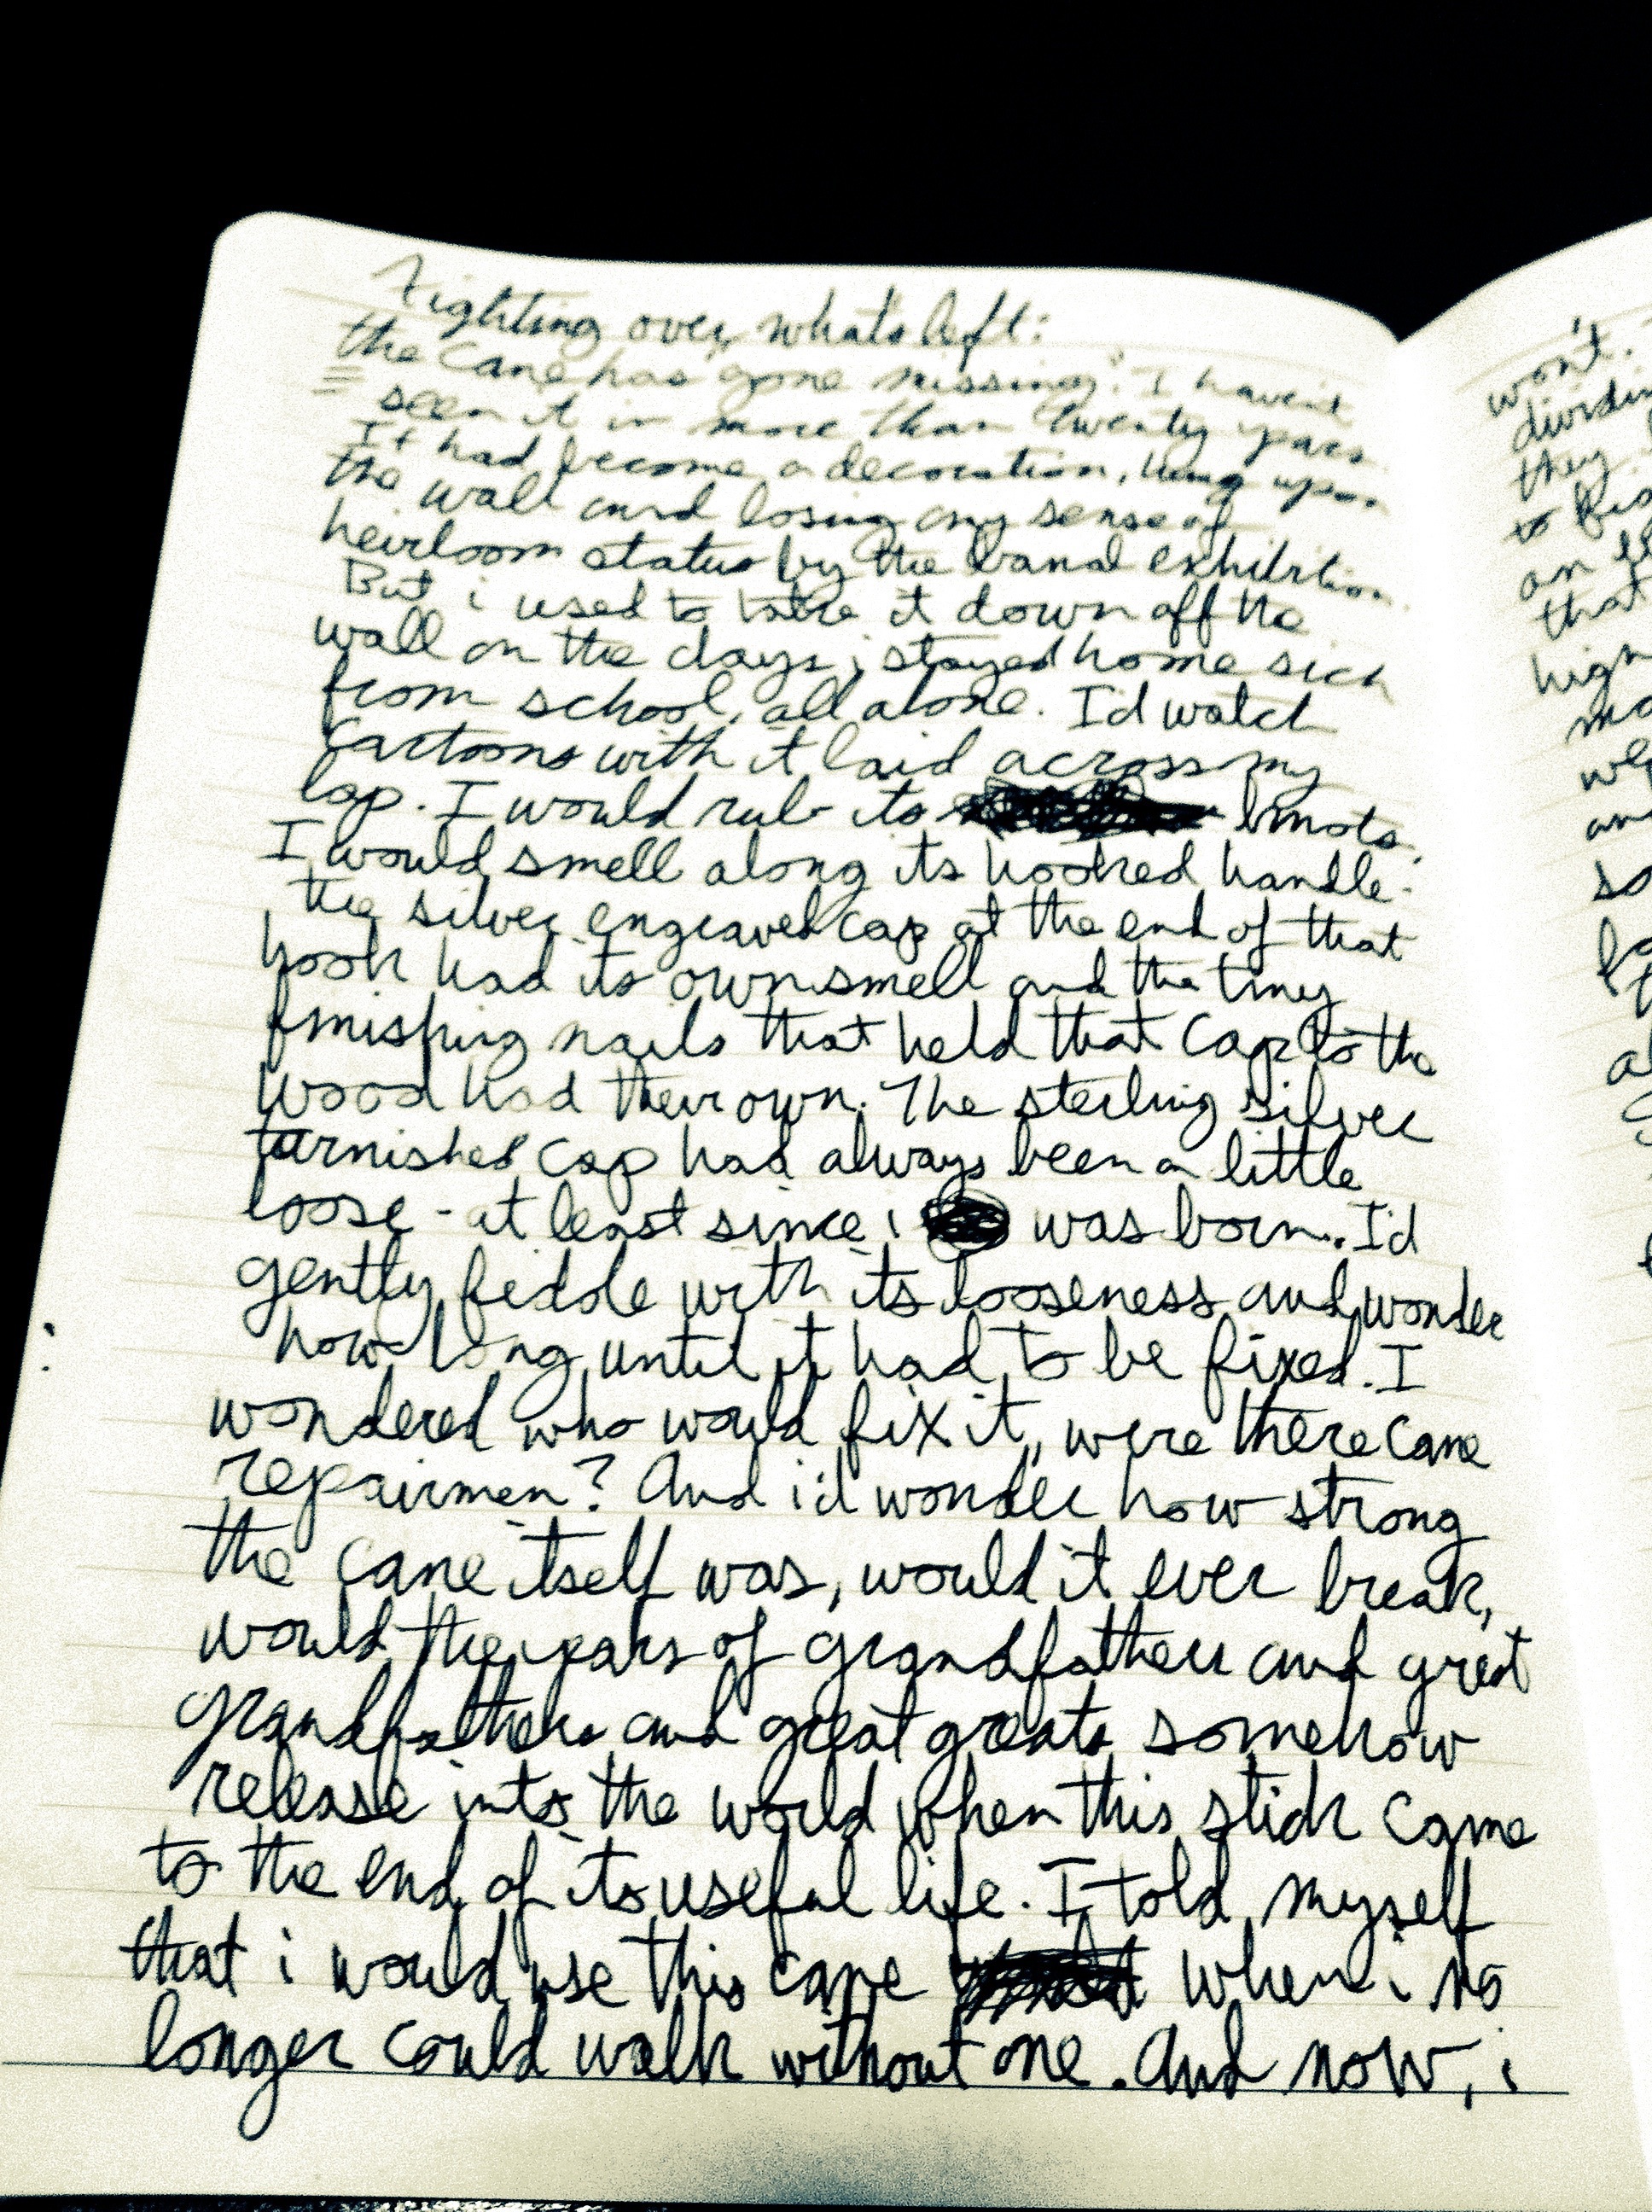 Fighting over whats left:
the cane has gone missing. I havent
seen it in more than twenty years
It had become a decoration, hung upon
the wall and losing any sense of
heirloom status by the banal exhibition.
But i used to take it down off the
wall on the days i stayed home sick
from school, all alone. I'd watch
cartoons with it laid across my
lap. I would rub its knots.
I would smell along its hooked handle.
the silver engraved cap at the end of that
hook had its own smell and the tiny
finishing nails that held that cap to the
wood had their own. The sterling silver
turnished cap had always been a little
loose - at least since i was born. I'd
gently fiddle with its looseness and wonder
how long until it had to be fixed. I
wondered who would fix it, were there cane
repairmen? And i'd wonder how strong
the cane itself was, would it ever break,
would the years of grandfathers and great
grandfathers and great greats somehow
release into the world when this stick came
to the end of its useful life. I told myself
that i would use this cane when i no
longer could walk without one. And now, i
won't.
they
that